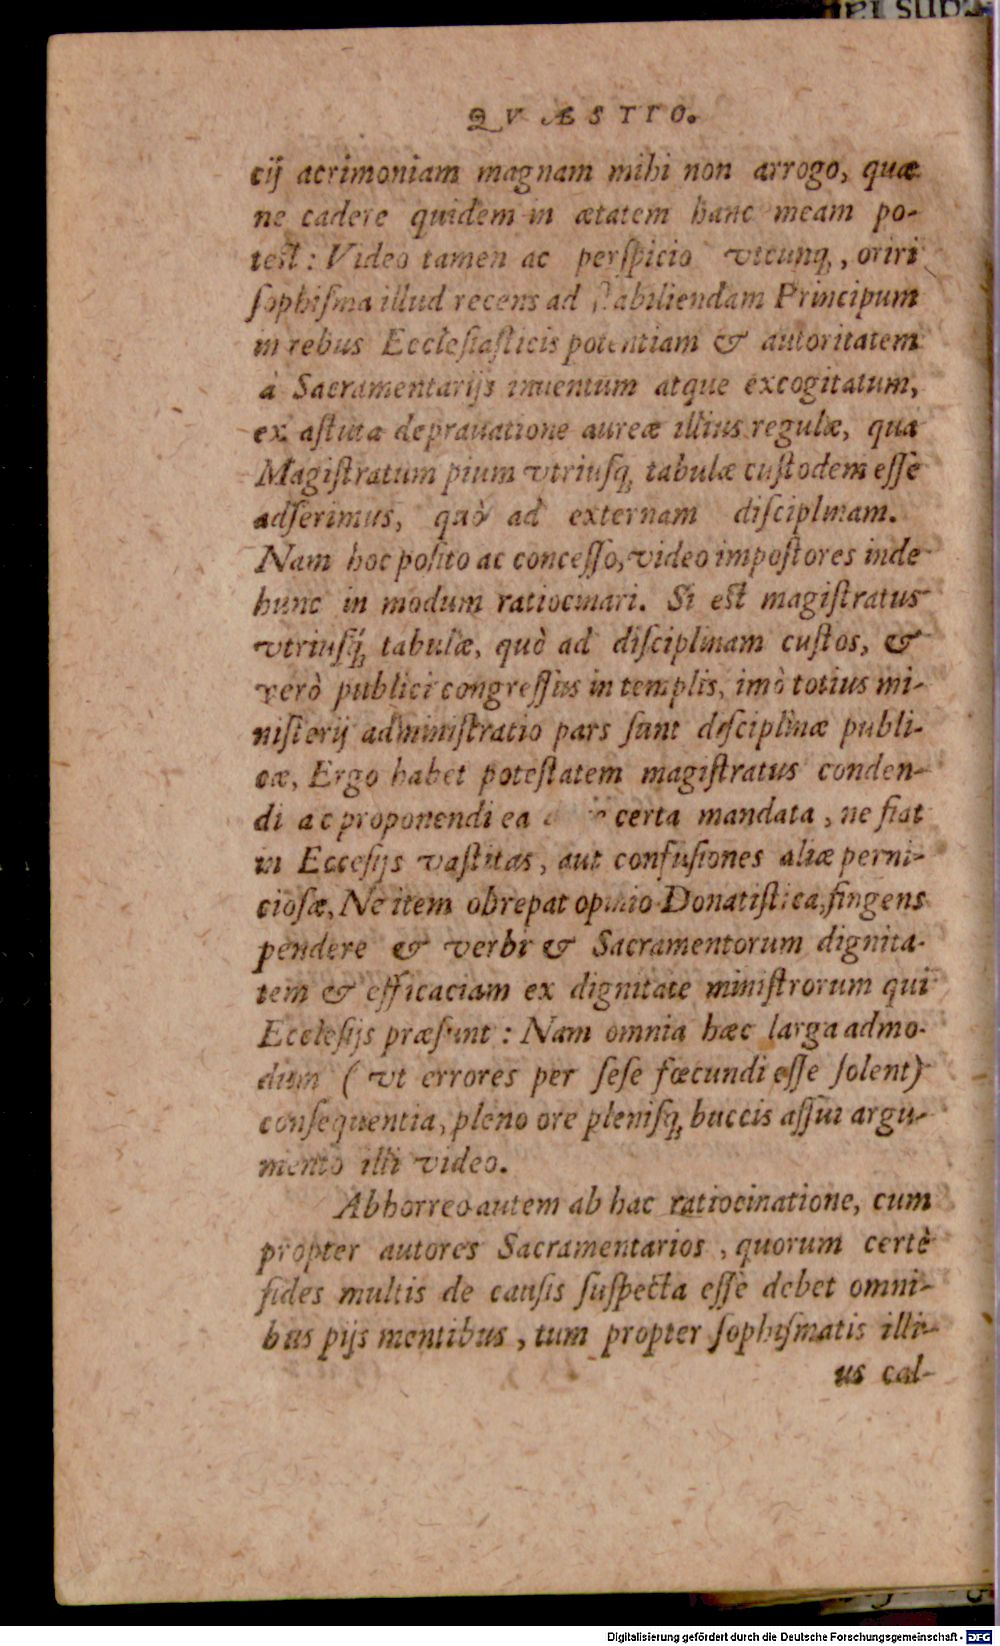 QVÆSTIO.
cij acrimoniam magnam mihi non arrogo, quæ
ne cadere quidem in ætatem hanc meam po-
test: Video tamen ac perſpicio vtcunq́, oriri
ſophiſma illud recens ad ſtabiliendam Principum
in rebus Eccleſiaſticis potentiam & autoritatem
à Sacramentarijs inuentum atque excogitatum,
ex aſtuta deprauatione aureæ illius regulæ, qua
Magiſtratum pium vtriuſq́ tabulæ cuſtodem eſſe
adſerimus, quò ad externam diſciplinam.
Nam hoc poſito ac conceſſo, video impoſtores inde
hunc in modum ratiocinari. Si est magiſtratus
vtriuſq́ tabulæ, quò ad diſciplinam cuſtos, &
verò publici congreſſus in templis, imò totius mi-
niſterij adminiſtratio pars ſunt diſciplinæ publi-
cæ, Ergo habet poteſtatem magiſtratus conden-
di ac proponendi ea certa mandata, ne fiat
in Eccesijs vaſtitas, aut confuſiones aliæ perni-
cioſæ, Ne item obrepat opinio Donatiſtica, fingens
pendere & verbi & Sacramentorum dignita-
tem & efficaciam ex dignitate miniſtrorum qui
Eccleſijs præſunt: Nam omnia hæc larga admo-
dum (vt errores per ſeſe fœcundi eſſe ſolent)
conſequentia, pleno ore pleniſq́ buccis aſſui argu-
mento illi video.
Abhorreo autem ab hac ratiocinatione, cum
propter autores Sacramentarios, quorum certè
fides multis de cauſis ſuſpecta eſſe debet omni-
bus pijs mentibus, tum propter ſophiſmatis illi-
us cal-
Digitalisierung gefördert durch die Deutsche Forschungsgemeinschaft - DFG